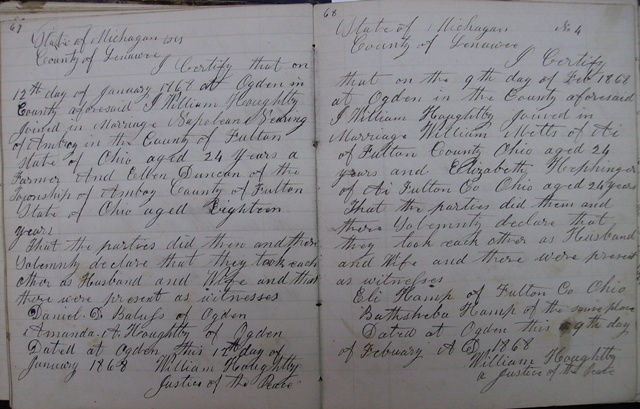 67
State of Michagan
County of Lenawee
I Certify that on
12th day of January 1868 at Ogden in
County aforesaid I William Houghtby
joined in Marriage Napolean
of Amboy in the County of Fulton
State of Ohio aged 24 years a
Farmer And Ellen Duncan of the
Township of Amboy County of Fulton
State of Ohio aged Eighteen
years
That the parties did then and there
Solemnly declare that they took each
other as Husband and Wife and that
there were present as witnesses
Daniel D. of Ogden
Amanda A. Houghtby of Ogden
Dated at Ogden this 12th day of
January 1868 William Houghtby
Justice of the Peace
68
State of Michagan No 4
County of Lenawee
I Certify
that on the 9th day of Feb 1868
at Ogden in the County aforesaid
I William Houghtby joined in
Marriage William Metts of Ai
of Fulton County Ohio aged 24
years and Elizabeth Hephinger
of Ai Fulton Co Ohio aged 24 years
That the parties did them and
there Solemnly declare that
they took each other as Husband
and Wife and there were present
as witnelses
Eli Hamp of Fulton Co Ohio
Bathsheba Hamp of the same place
Dated at Ogden this 9th day
of Febuary A D 1868
William Houghtby
a Justice of the Peace